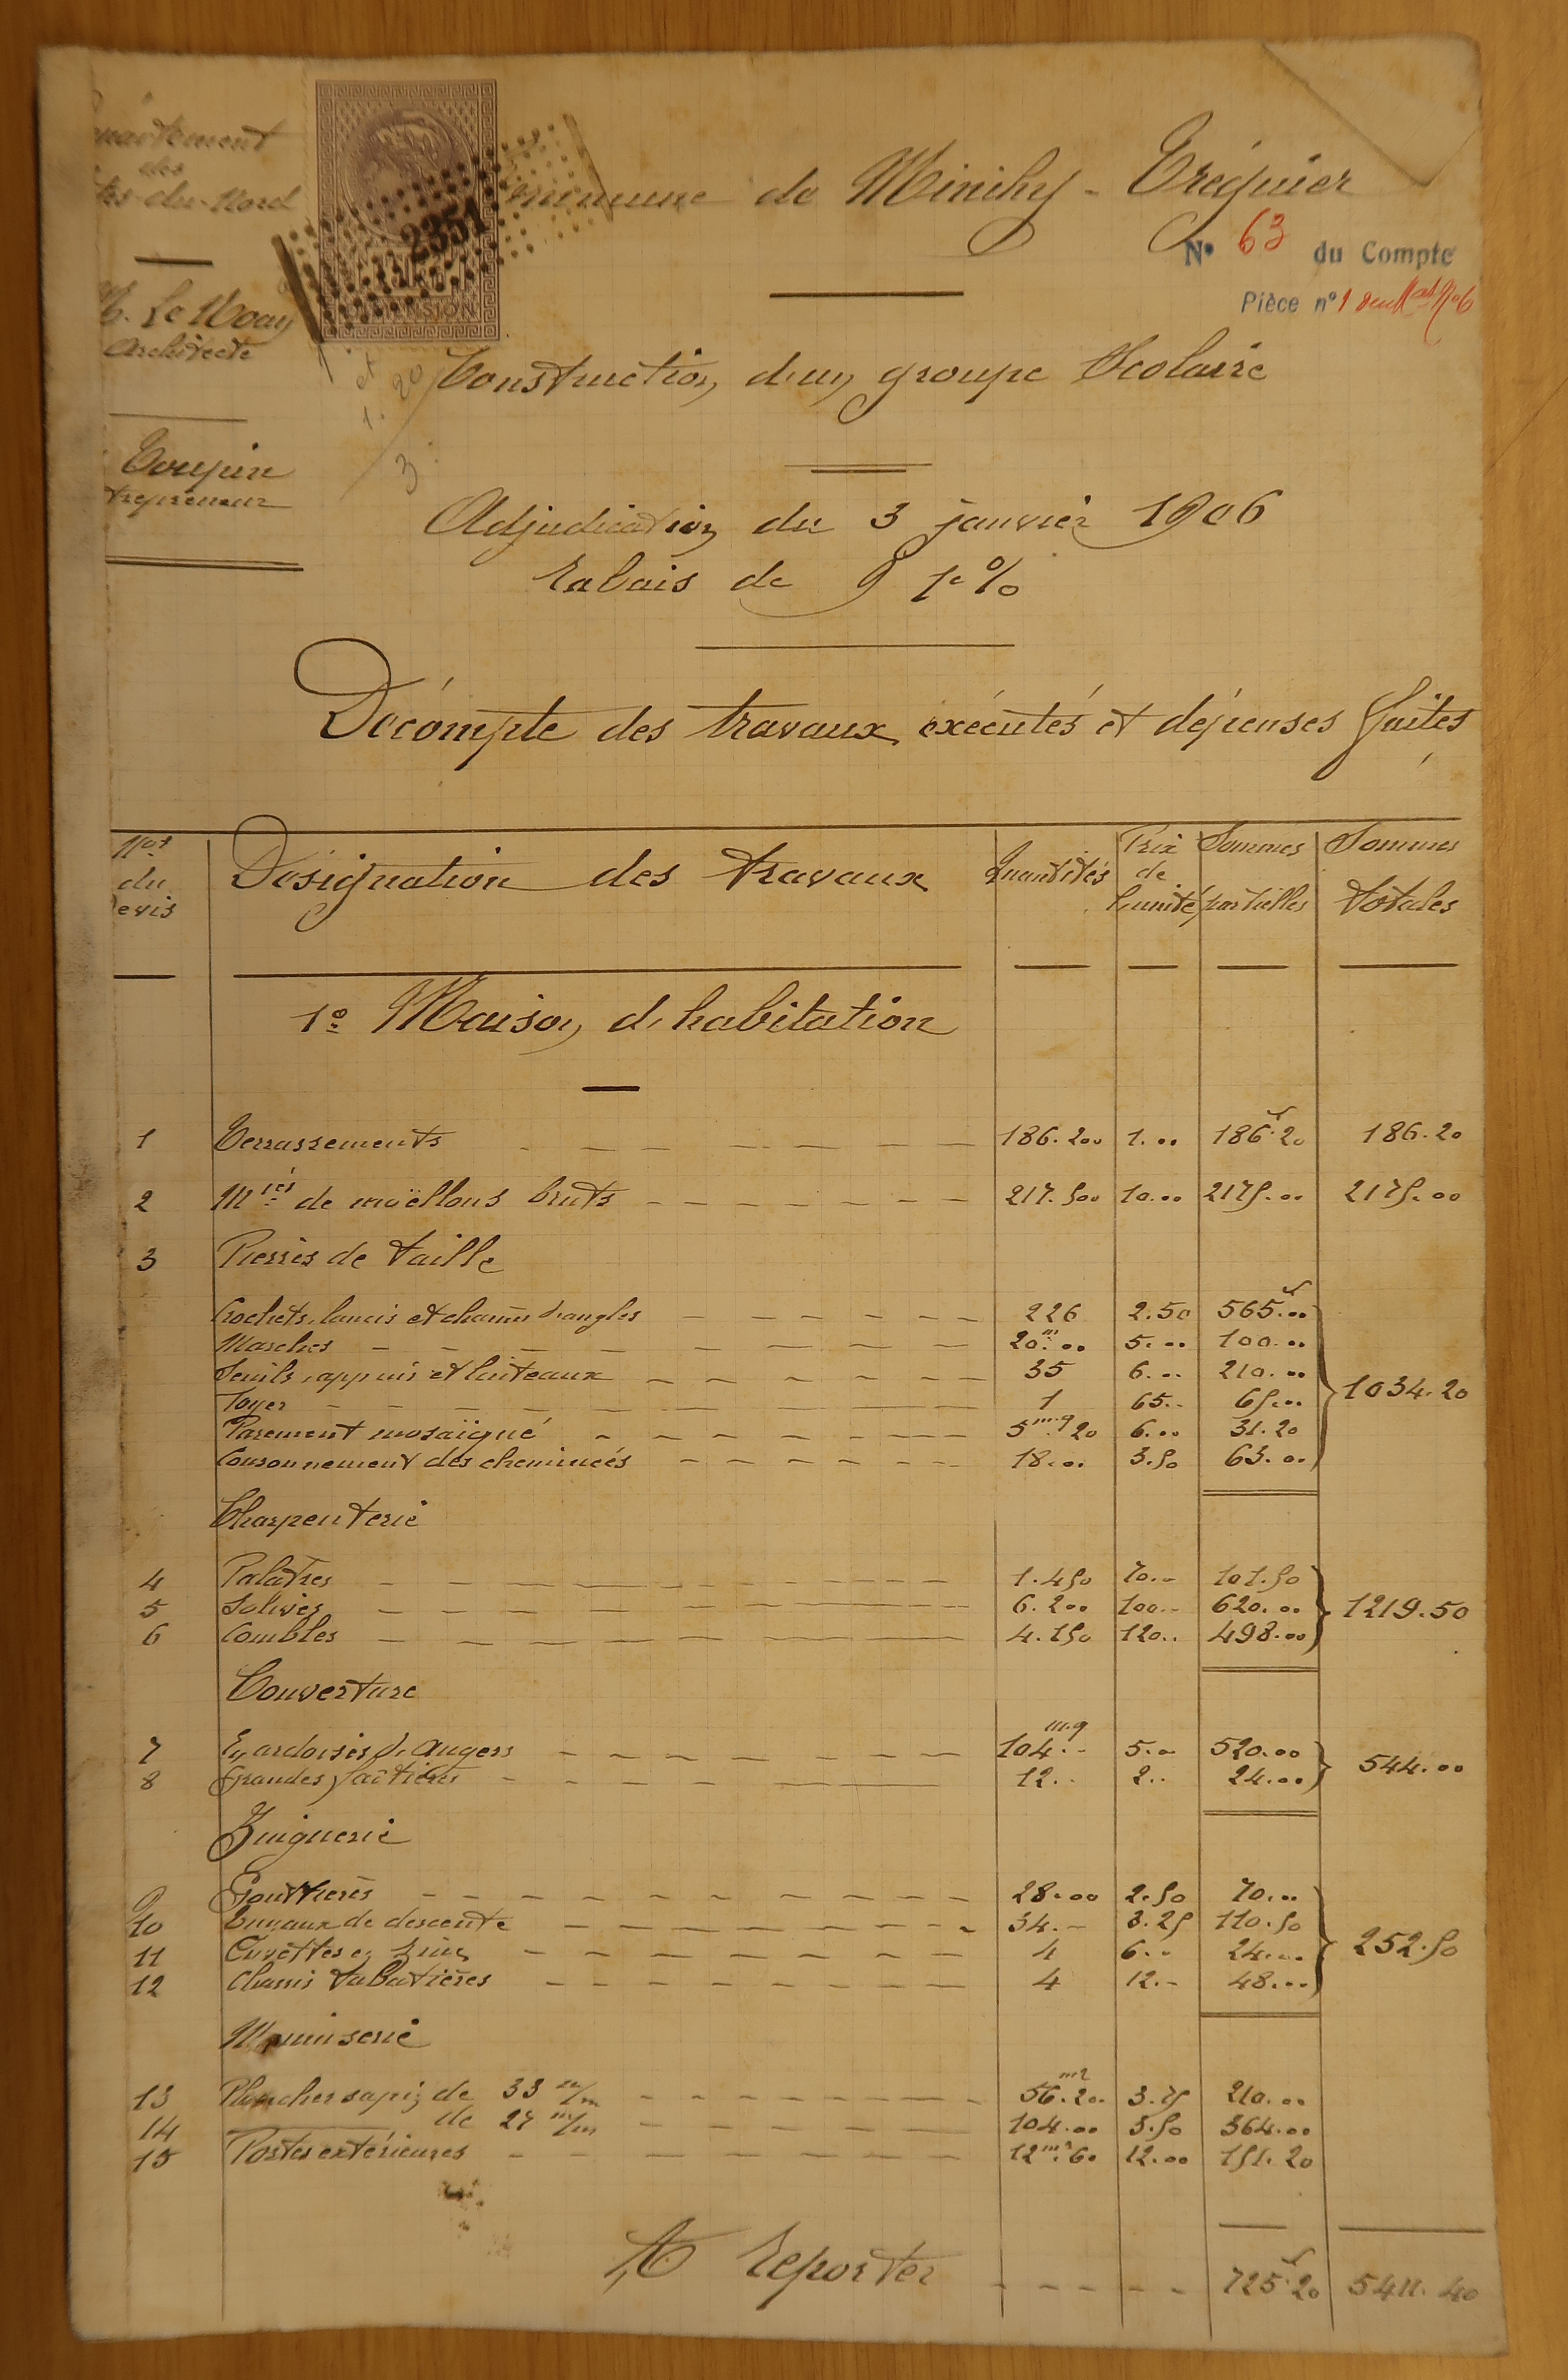 partement
des
tes-du-Nord
Commune de Minihy-Tréguier
N° 63 du Compte
Pièce n° 1
2351
DIMENSION
M. Le Moay
Architecte
et
1. 20
3
Construction d'un groupe Scolaire
Toupin
trepreneur
Adjudication du 3 janvier 1906
Rabais de 9 p. %
Décompte des travaux exécutés et dépenses faites
Nos du Devis Désignation des travaux Quantités Prix de l'unité Sommes partielles Sommes totales
1° Maison d'habitation
1 Terrassements 186.200 1.00 186f.20 186.20
2 Mries de moëllons bruts 217.500 10.00 2175.00 2175.00
3 Pierres de taille
Crochets, lancis et chaines d'angles 226 2.50 565f.00
Marches 20m.00 5.00 100.00
Seuils, appuis et linteaux 35 6.00 210.00
Foyer 1 65.- 65.00 1034.20
Parement mosaïqué 5m.q20 6.00 31.20
Couronnement des cheminées 18.00 3.50 63.00
Charpenterie
4 Palâtres 1.450 70.- 101.50
5 Solives 6.200 100.- 620.00 1219.50
6 Combles 4.150 120.. 498.00
Couverture
7 En ardoises d'Angers 104m.q.- 5.- 520.00 544.00
8 Grandes faîtières 12.. 2.. 24.00
Zinguerie
9 Gouttières 28.00 2.50 70.00
10 Tuyaux de descente 34.- 3.25 110.50
11 Cuvettes en zinc 4 6.- 24.00 252.50
12 Chassis tabatières 4 12.- 48.00
Menuiserie
13 Plancher sapin de 33 m/m 56m2.20. 3.75 210.00
14 de 27 m/m 104.00 3.50 364.00
15 Portes extérieures 12m2.60 12.00 151.20
A Reporter 725f.20 5411.40